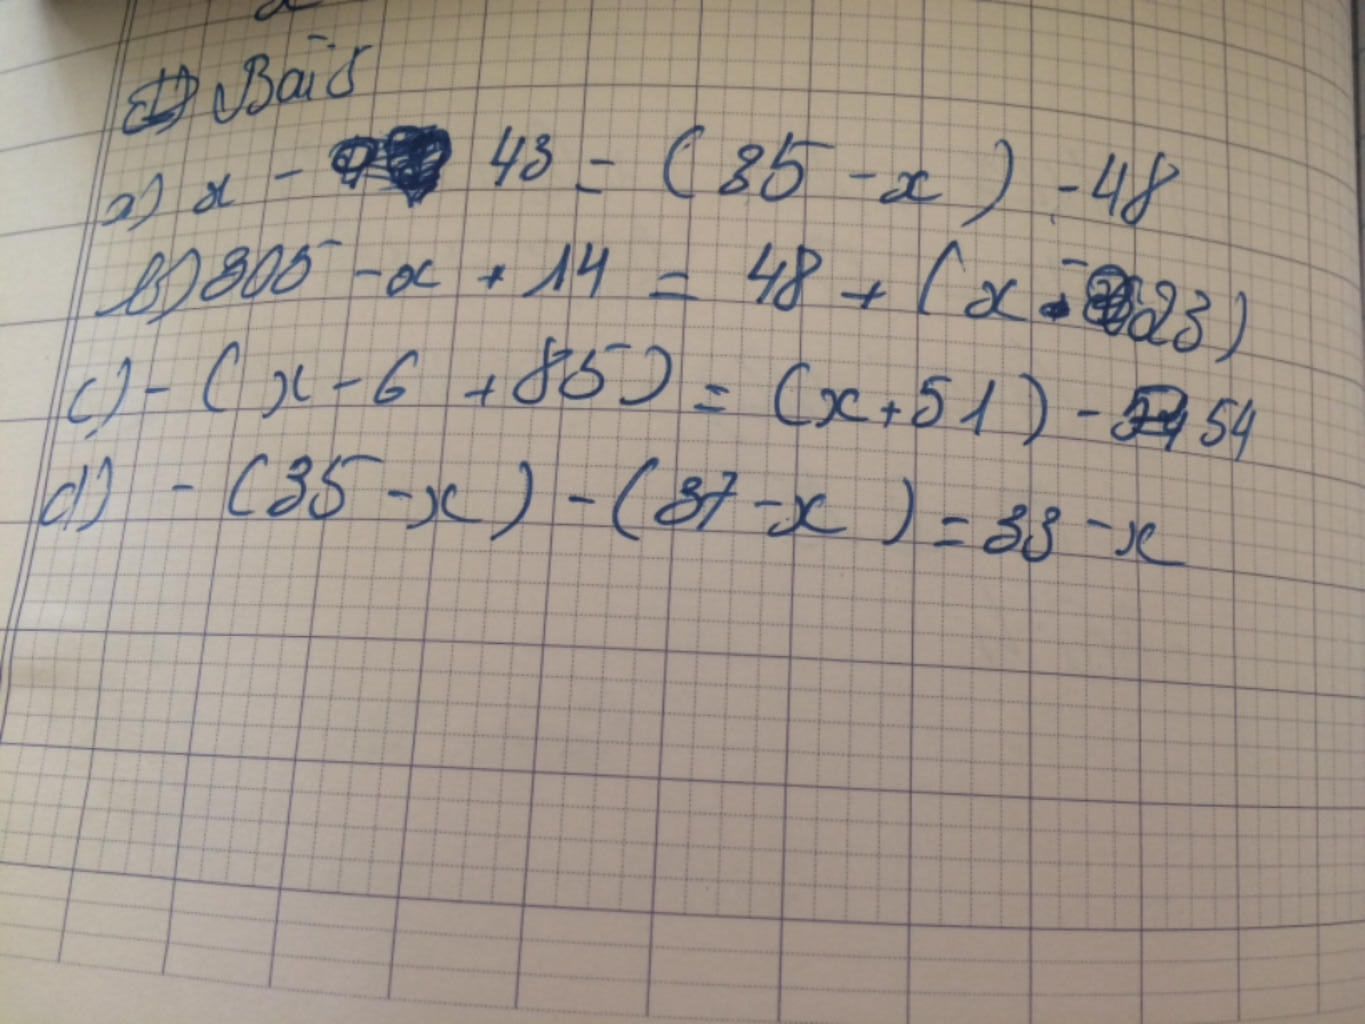 Bài 5
a) x - 43 = (35 - x) - 48
b) 305 - x + 14 = 48 + (x - 23)
c) - (x - 6 + 85) = (x + 51) - 54
d) - (35 - x) - (37 - x) = 33 - x